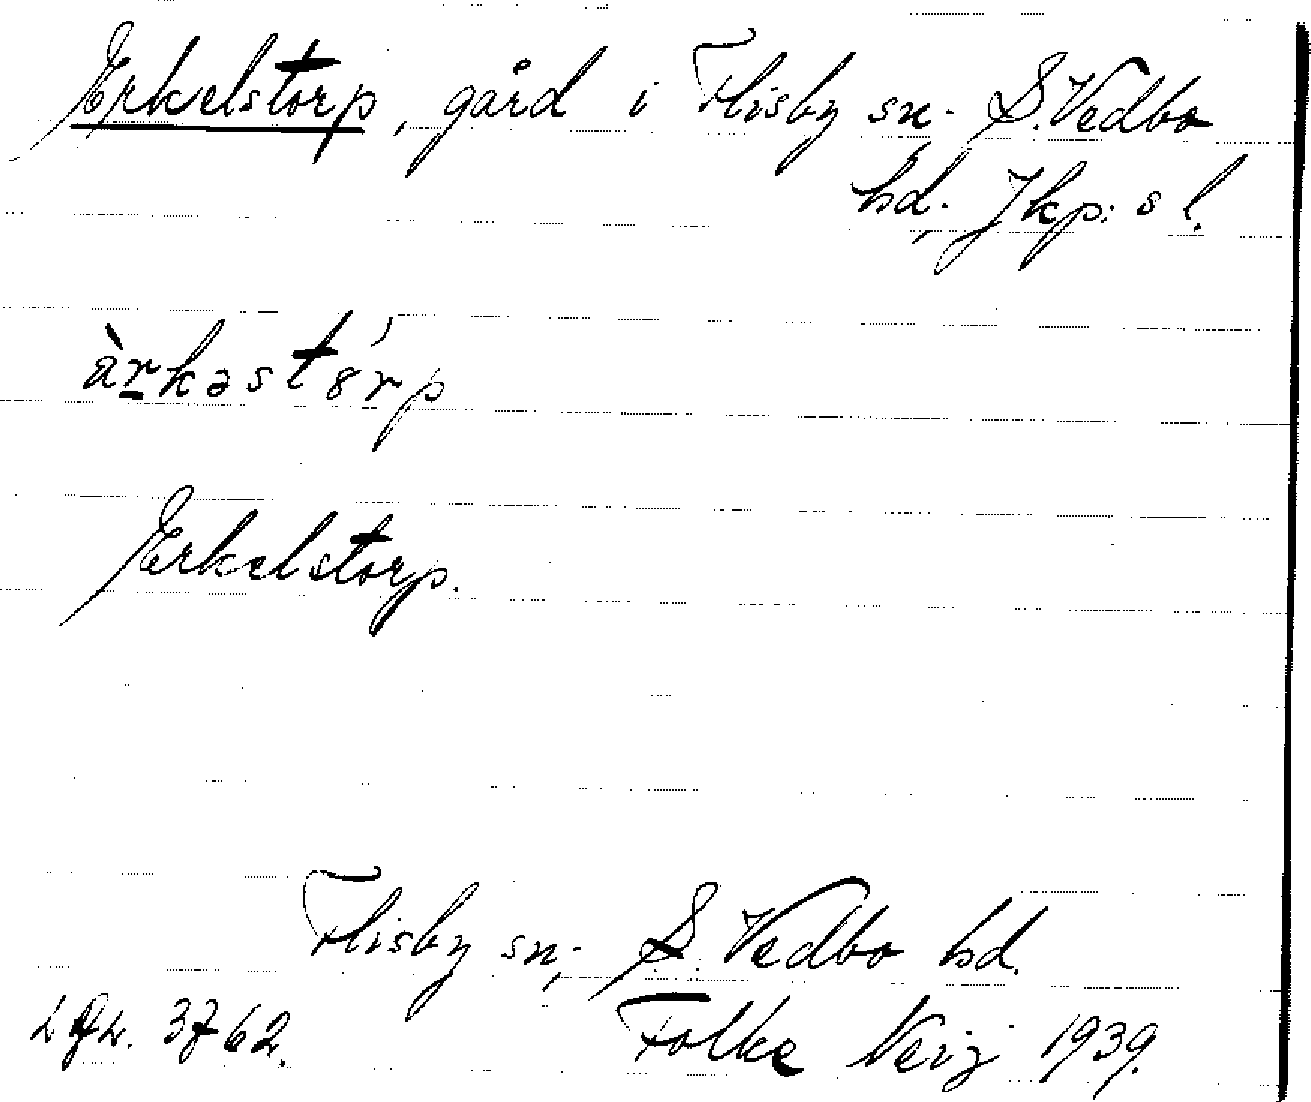 Erkelstorp, gård i Flisby sn. S. Vedbo
hd, Jkp:s l.
àrkəstórp
Erkelstorp.
Flisby sn, S. Vedbo hd.
3762. Folke Neij 1939.